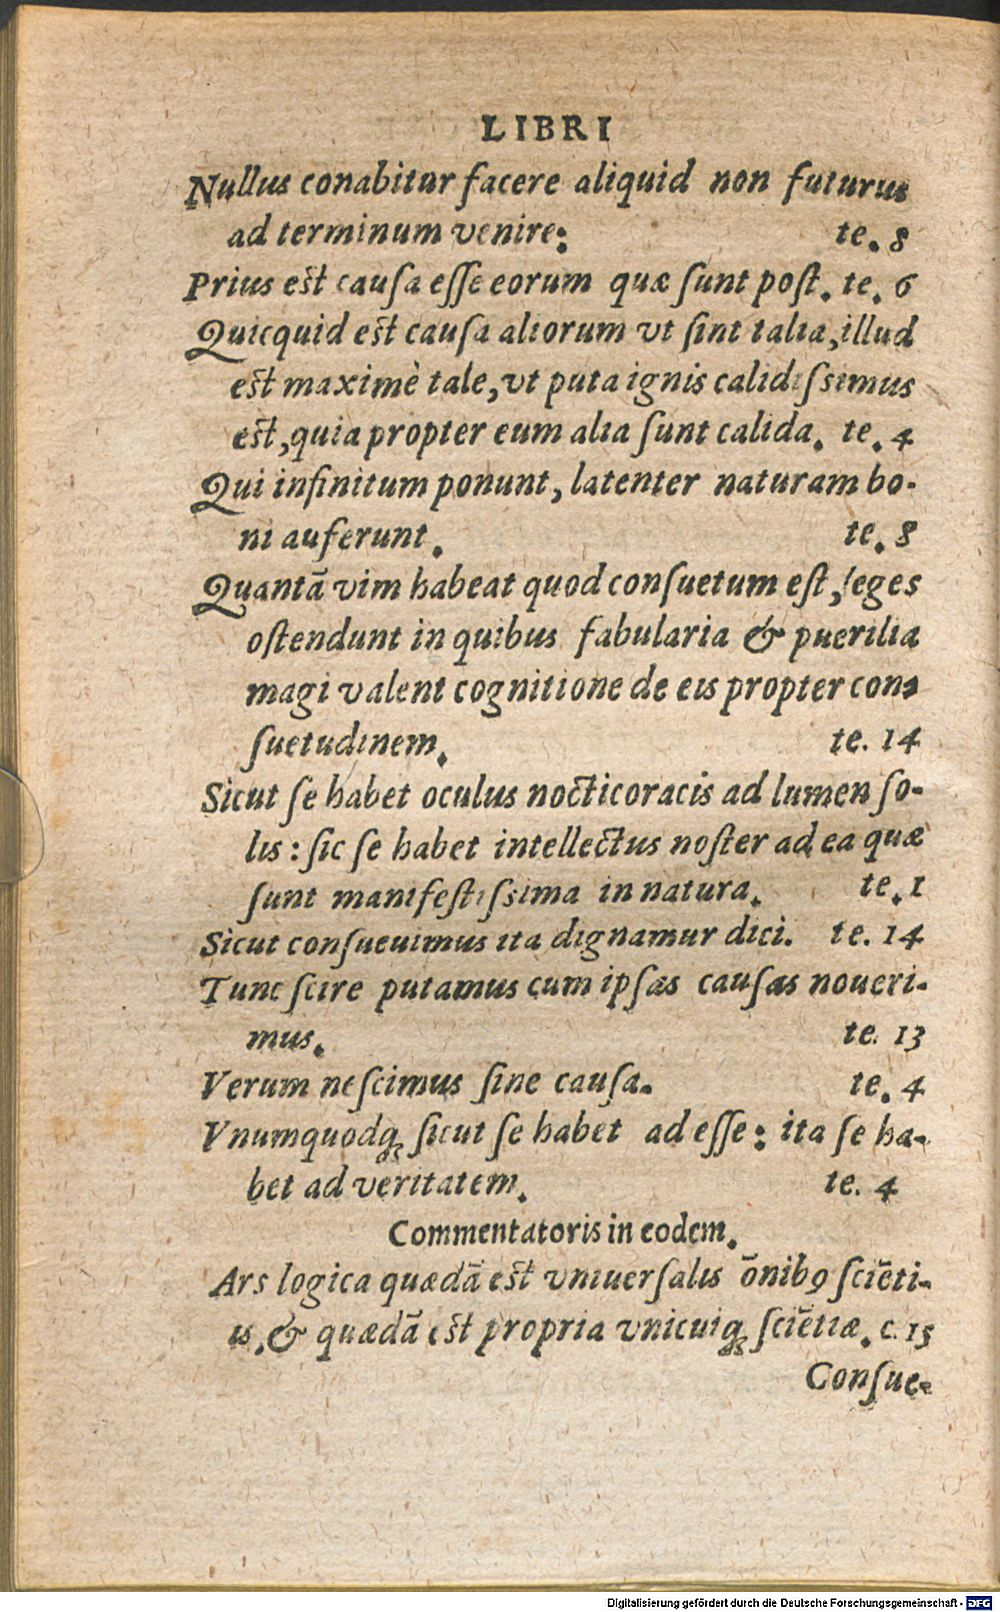 LIBRI
Nullus conabitur facere aliquid non futurus
ad terminum venire: te. 8
Prius est causa esse eorum quæ sunt post. te. 6
Quicquid est causa aliorum vt sint talia, illud
est maximè tale, vt puta ignis calidissimus
est, quia propter eum alia sunt calida. te. 4
Qui infinitum ponunt, latenter naturam bo-
ni auferunt. te. 8
Quantā vim habeat quod consuetum est, leges
ostendunt in quibus fabularia & puerilia
magi valent cognitione de eis propter con-
suetudinem. te. 14
Sicut se habet oculus nocticoracis ad lumen so-
lis: sic se habet intellectus noster ad ea quæ
sunt manifestissima in natura. te. 1
Sicut consueuimus ita dignamur dici. te. 14
Tunc scire putamus cum ipsas causas noueri-
mus. te. 13
Verum nescimus sine causa. te. 4
Vnumquodq; sicut se habet ad esse: ita se ha-
bet ad veritatem. te. 4
Commentatoris in eodem.
Ars logica quædā est vniuersalis ōnibꝰ sciēti-
is, & quædā est propria vnicuiq; sciētiæ. c. 15
Consue-
Digitalisierung gefördert durch die Deutsche Forschungsgemeinschaft - DFG